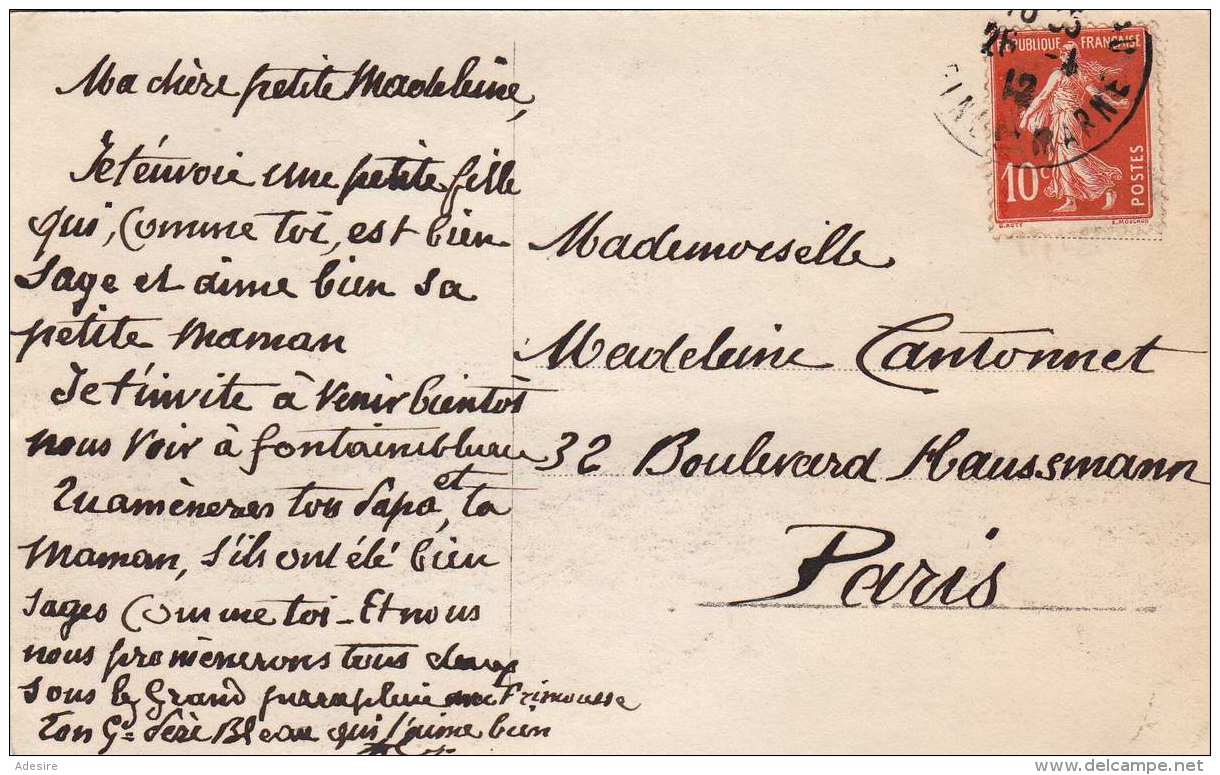 Ma chère petite Madeleine,
Je t'envoie une petite fille
qui, comme toi, est bien
sage et aime bien sa
petite maman
Je t'invite à venir bientôt
nous voir à fontainebleau
Tu amèneras ton Papa, et ta
Maman, s'ils ont été bien
sages comme toi - Et nous
nous promènerons tous deux
sous le Grand parapluie Frimousse
ton Gd Père Bleau qui t'aime bien
Mademoiselle
Madeleine Cantonnet
32 Boulevard Haussmann
Paris
26 -4
12
MARNE
REPUBLIQUE FRANÇAISE
10c
POSTES
O. ROTY E. MOUCHON
Adesire
www.delcampe.net